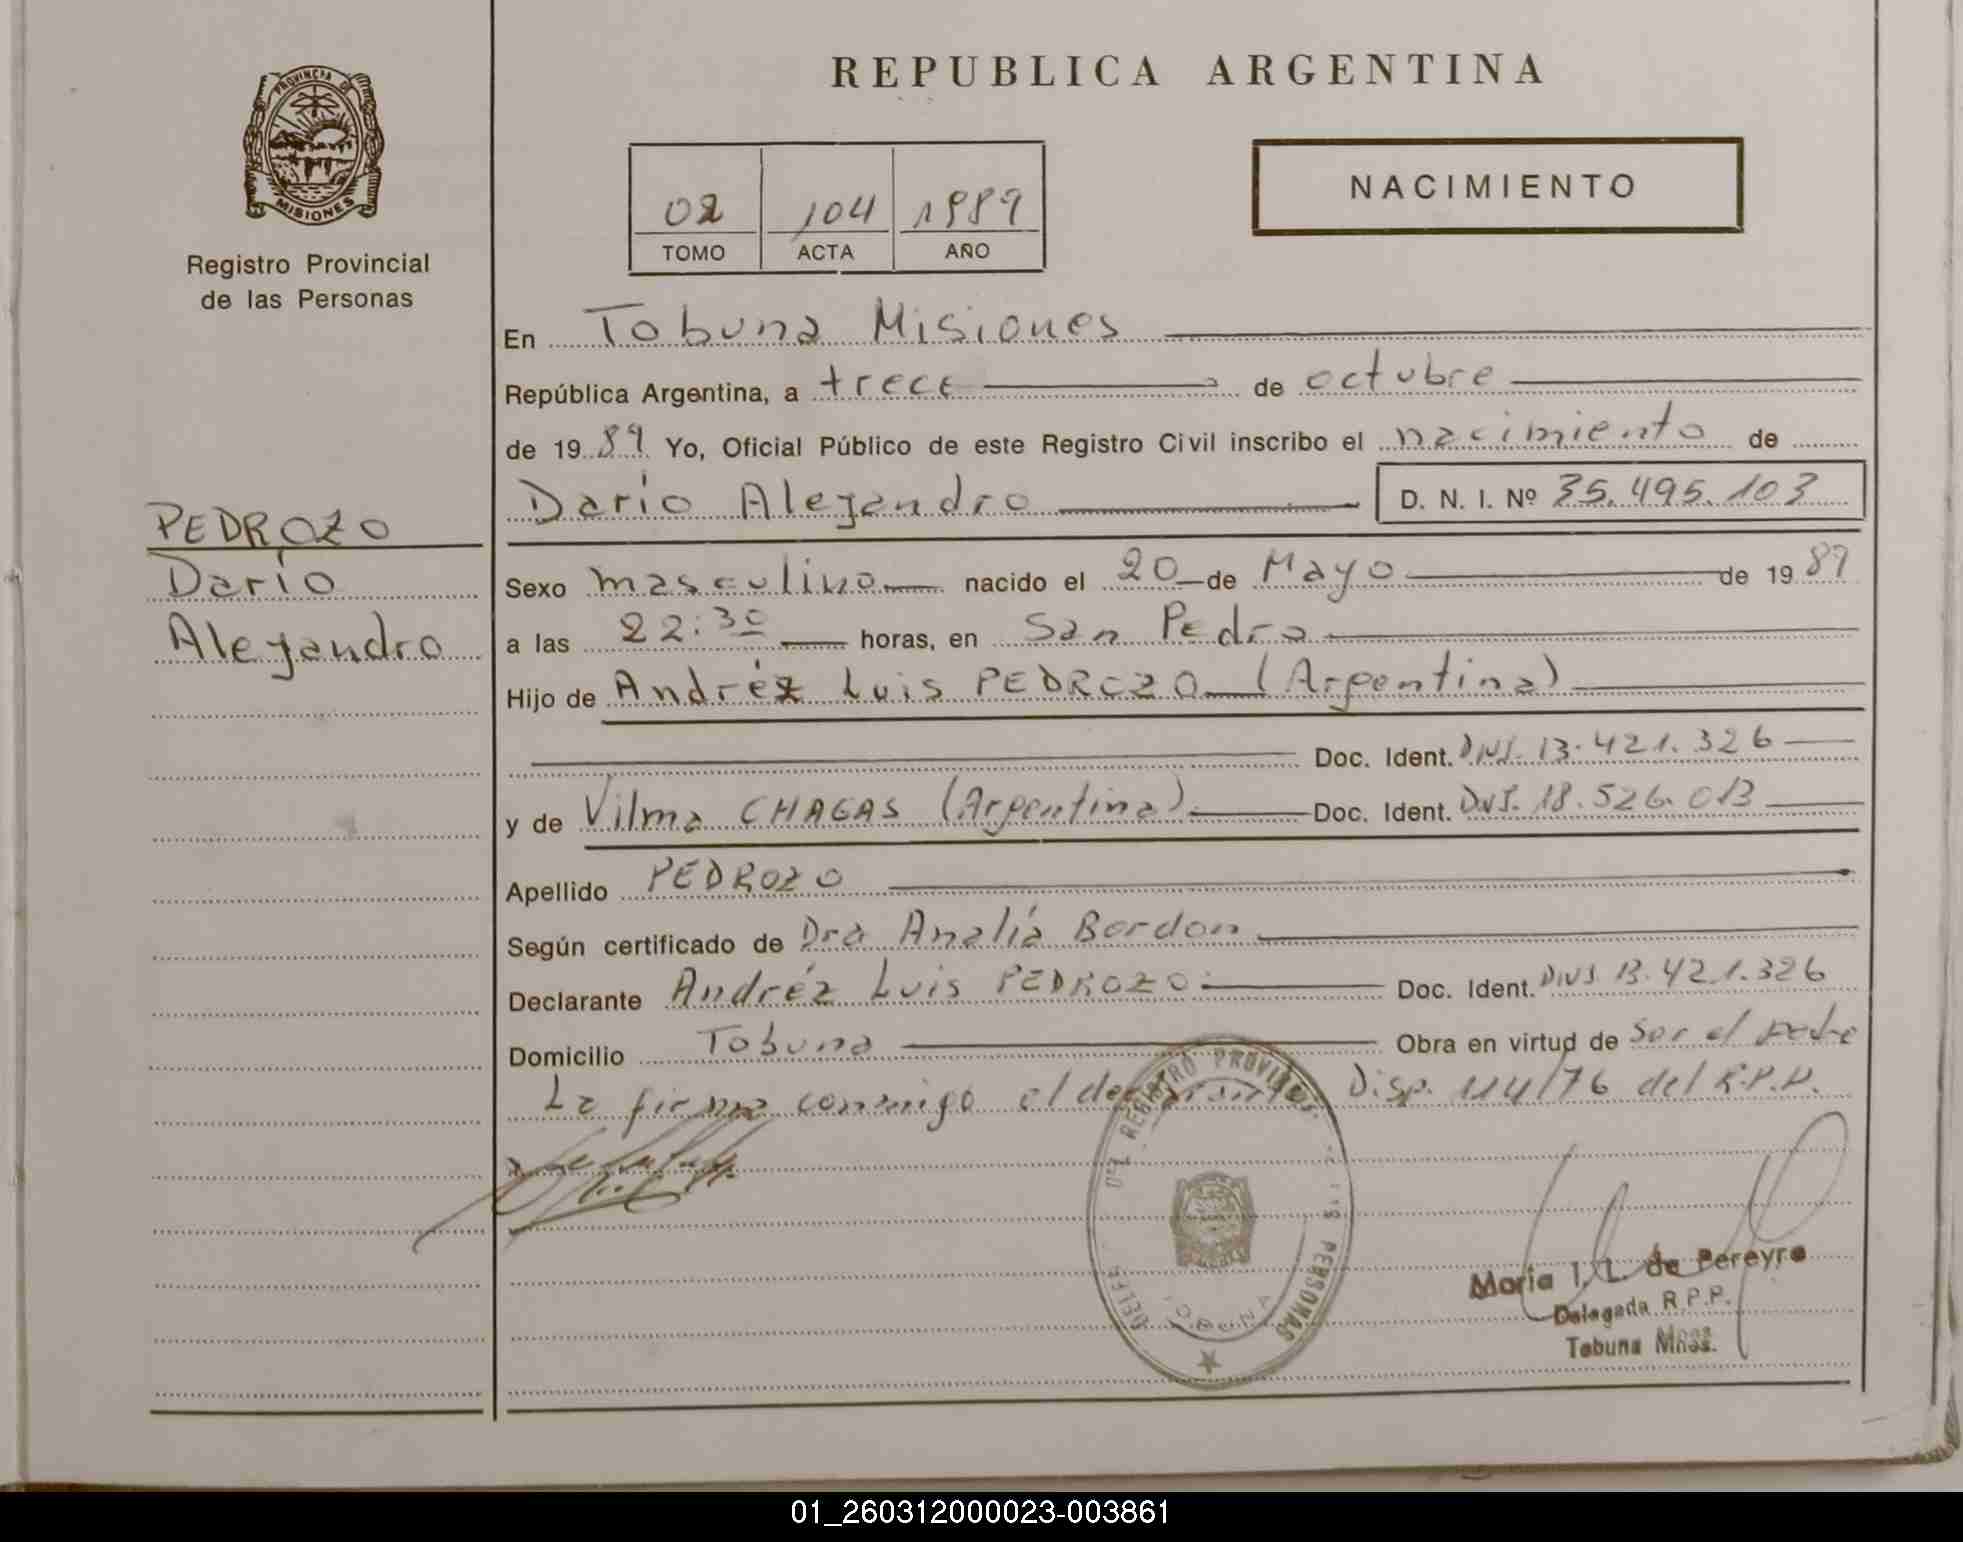 REPUBLICA ARGENTINA
PROVINCIA DE
MISIONES
Registro Provincial
de las Personas
02 104 1989
TOMO ACTA AÑO
NACIMIENTO
En Tobuna Misiones
República Argentina, a trece de octubre
de 1989 Yo, Oficial Público de este Registro Civil inscribo el nacimiento de
Darío Alejandro D. N. I. Nº 35.495.103
PEDROZO
Darío
Alejandro
Sexo masculino nacido el 20 de Mayo de 1989
a las 22:30 horas, en San Pedro
Hijo de Andréz Luis PEDROZO (Argentina)
Doc. Ident. DNI. 13.421.326
y de Vilma CHAGAS (Argentina) Doc. Ident. DNI. 18.526.013
Apellido PEDROZO
Según certificado de Dra Analía Bordon
Declarante Andréz Luis PEDROZO Doc. Ident. DNI 13.421.326
Domicilio Tobuna Obra en virtud de Ser el Padre
La firma conmigo el declarante Disp. 114/76 del R.P.P.
REGISTRO PROVINCIAL PERSONAS
TOBUNA
Maria I. L. de Pereyra
Delegada R.P.P.
Tobuna Mnes.
01_260312000023-003861